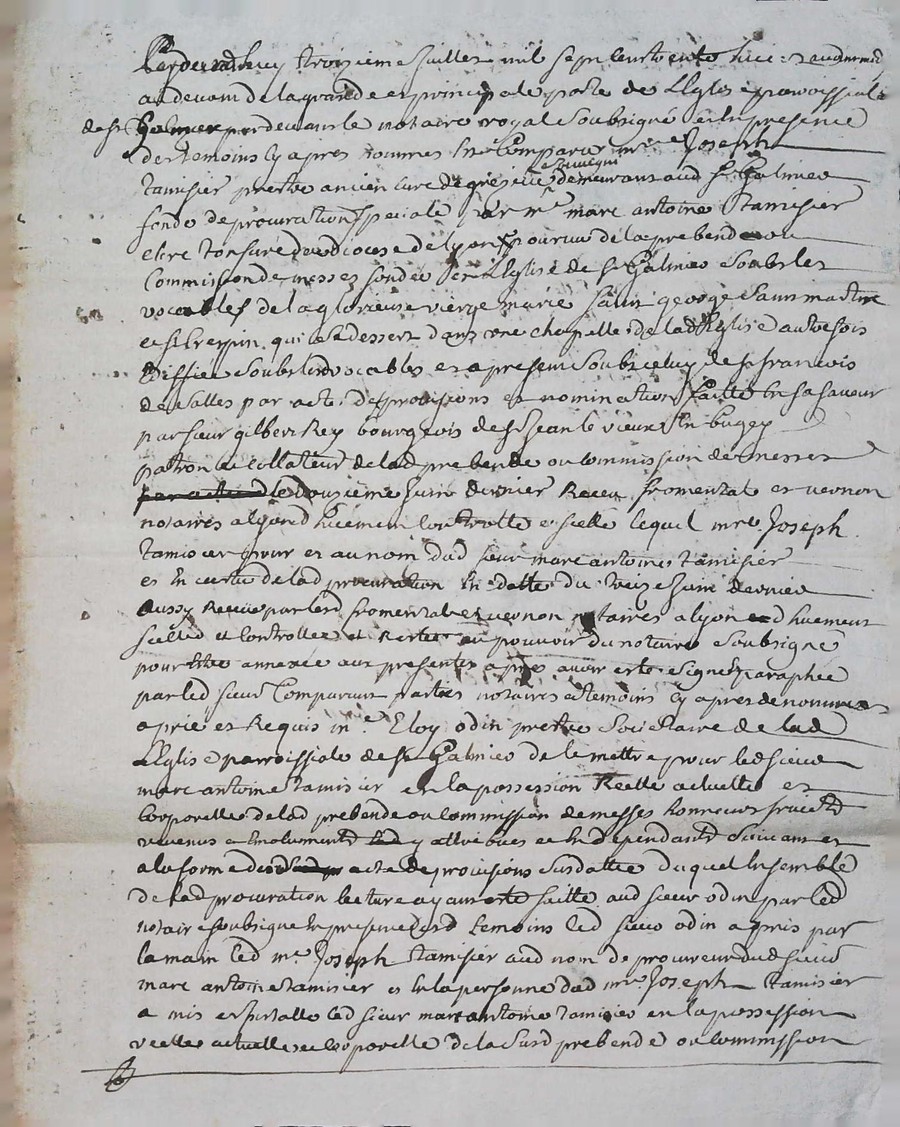 Pardevant huy troizieme Juillet mil sept cent trente huict avant midy
au devant de la grande et principale porte de LEglise parroissiale
de St Galmier par devant le notaire royal soubsigné et en presence
des temoins cy apres nommes En Comparu mre Joseph
tamisier prestre ancien curé de demeurant aud St Galmier
fondé de procuration speciale par mre marc antoine Tamisier
clerc tonsuré du diocese de Lyon pourvu de la prebende ou
Commission de messes fondée En LEglise de St Galmier soubs les
vocables de la glorieuse vierge marie saint george saint martin
et St crespin qui se dessert dans une chapelle de lad Eglise autrefois
soubs lesd vocables et a present soubs celuy de St francois
de salles par acte de provisions et nomination faitte En sa faveur
par sieur gilbert Rey bourgeois de St Jean le vieux En bugey
patron et collateur de lad prebende ou Commission de messes
le douzieme Juin dernier Receu fromental et vernon
notaires a Lyon d huement Controllé et scellé lequel mre Joseph
tamisier pour et au nom dud sieur marc antoine tamisier
et En vertu de lad procuration En datte du Juin dernier
aussy Receue par lesd fromental et vernon notaires a lyon d huement
scellée et Controllée et Restée au pouvoir du notaire soubsigné
pour Estre annexée aux presentes apres avoir esté signée et paraphée
par led sieur Comparant parties notaires et temoins cy apres denommes
a prié et Requis mre Eloy odin prestre societaire de lad
LEglise parroissiale de St Galmier de le mettre pour led sieur
marc antoine tamisier en la possession Reelle actuelle et
Corporelle de lad prebende ou Commission de messes honneurs fruicts
revenus et Emoluments y attribues et En dependants suivant et
a la forme dud acte de provisions susdatté duquel Ensemble
de lad procuration lecture ayant esté faitte aud sieur odin par led
notaire soubsigné En presence desd temoins led sieur odin a pris par
la main led mre Joseph tamisier aud nom de procureur dud sieur
marc antoine tamisier et En la personne dud mre Joseph tamisier
a mis et Installé led sieur marc antoine tamisier en la possession
reelle actuelle et corporelle de la susd prebende ou Commission